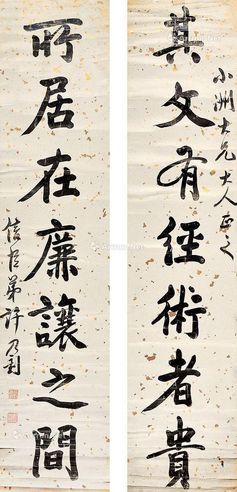 其文有經術者貴
小洲大兄大人正之
所居在廉讓之間
信臣弟許乃釗